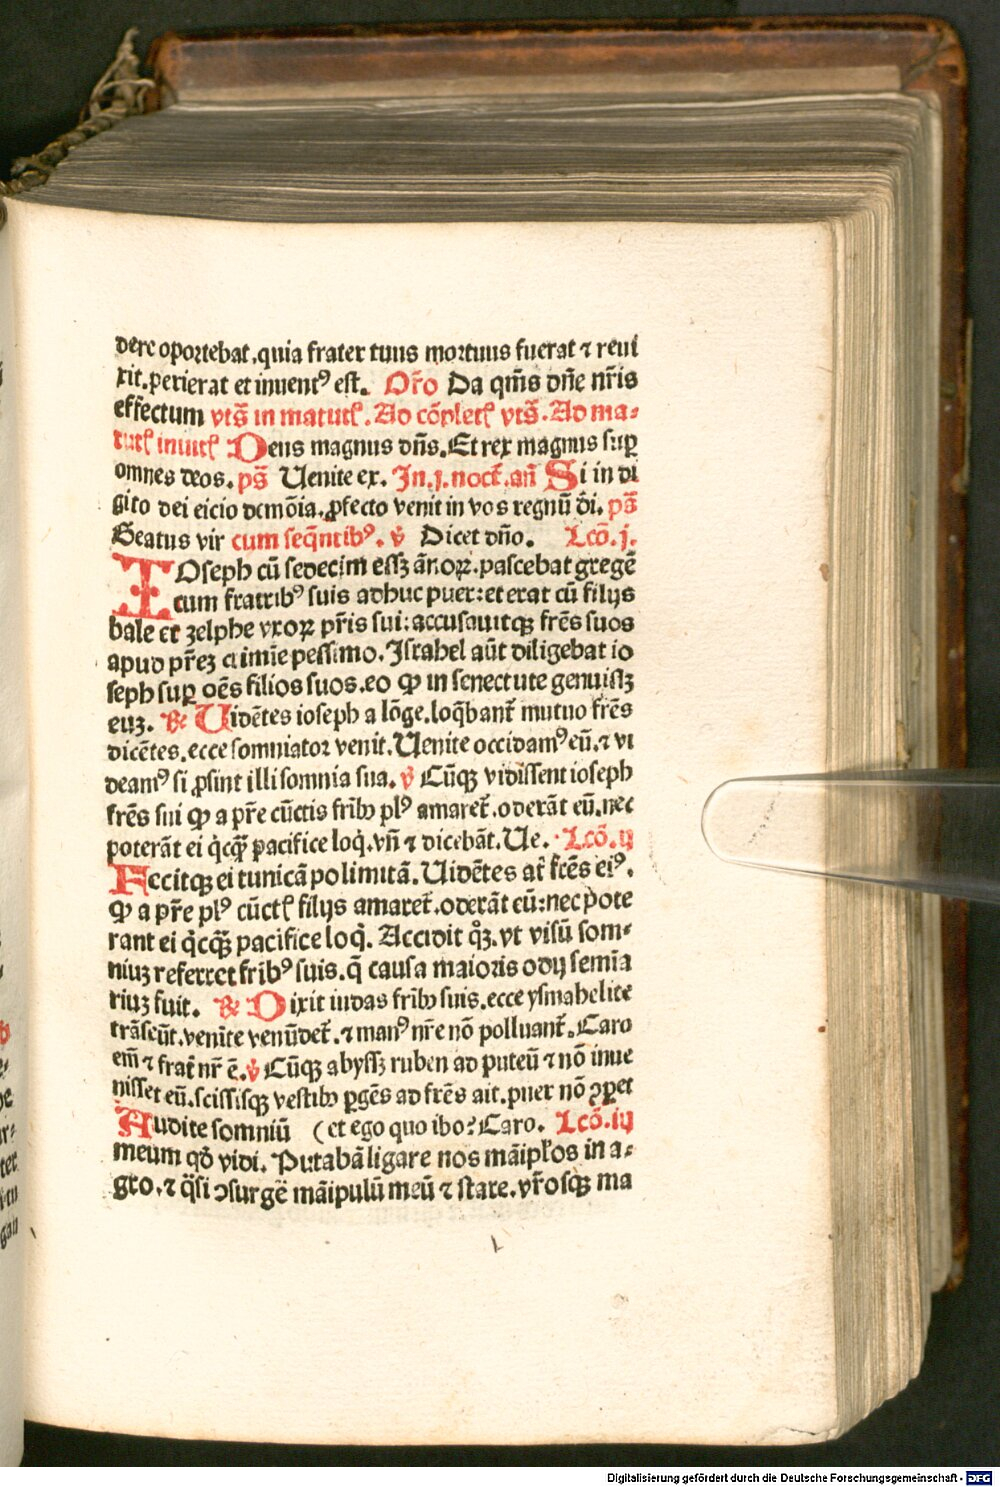 dere oportebat, quia frater tuus mortuus fuerat ⁊ reui
xit. perierat et inuentꝰ est. Or̄o Da qm̄s dn̄e nr̄is
effectum vts̄ in matutꝭ. Ad cōpletꝭ vts̄. Ad ma-
tutꝭ inuitꝭ Deus magnus dn̄s. Et rex magnus suꝑ
omnes deos. ps̄ Uenite ex. In. j. noct̄. an̄ Si in di
gito dei eicio demōia. ꝓfecto venit in vos regnū di̅. ps̄
Beatus vir cum seq̄ntibꝰ. v̄ Dicet dn̄o. Lcō. j.
IOseph cū sedecim essꝫ ān̄oꝝ. pascebat gregē
cum fratribꝰ suis adhuc puer: et erat cū filijs
bale et zelphe vxoꝝ pr̄is sui: accusauitqꝫ fr̄es suos
apud pr̄eꝫ crimīe pessimo. Israhel aūt diligebat io
seph suꝑ oēs filios suos. eo ꝙ in senectute genuissꝫ
euꝫ. ℞ Uidētes ioseph a lōge. loq̄bant᷑ mutuo fr̄es
dicētes. ecce somniator venit. Uenite occidamꝰ eū. ⁊ vi
deamꝰ si ꝓsint illi somnia sua. v̄ Cūqꝫ vidissent ioseph
fr̄es sui ꝙ a pr̄e cūctis fr̄ibꝫ plꝰ amaret᷑. oderāt eū. nec
poterāt ei q̇cꝗ̄ pacifice loq̇. vn̄ ⁊ dicebāt. Ue. Lcō. ij
Fecitqꝫ ei tunicā polimitā. Uidētes at̄ fr̄es eiꝰ.
ꝙ a pr̄e plꝰ cūctꝭ filijs amaret᷑. oderāt eū: nec pote
rant ei q̇cꝗ̄ pacifice loq̇. Accidit qͦꝫ. vt visū som-
niuꝫ referret fr̄ibꝰ suis. q̄ causa maioris odij semina
riuꝫ fuit. ℞ Dixit iudas fr̄ibꝫ suis. ecce ysmahelite
trāseūt. venite venūdet᷑. ⁊ manꝰ nr̄e nō polluant᷑. Caro
em̄ ⁊ frat̄ nr̄ ē. v̄ Cūqꝫ abyssꝫ ruben ad puteū ⁊ nō inue
nisset eū. scissisqꝫ vestibꝫ ꝑgēs ad fr̄es ait. puer nō ꝯꝑet
Audite somniū (et ego quo ibo? Caro. Lcō. iij
meum qd̄ vidi. Putabā ligare nos māipl̄os in a-
gro. ⁊ q̈si ꝯsurgē māipulū meū ⁊ stare. vr̄osqꝫ ma
Digitalisierung gefördert durch die Deutsche Forschungsgemeinschaft - DFG